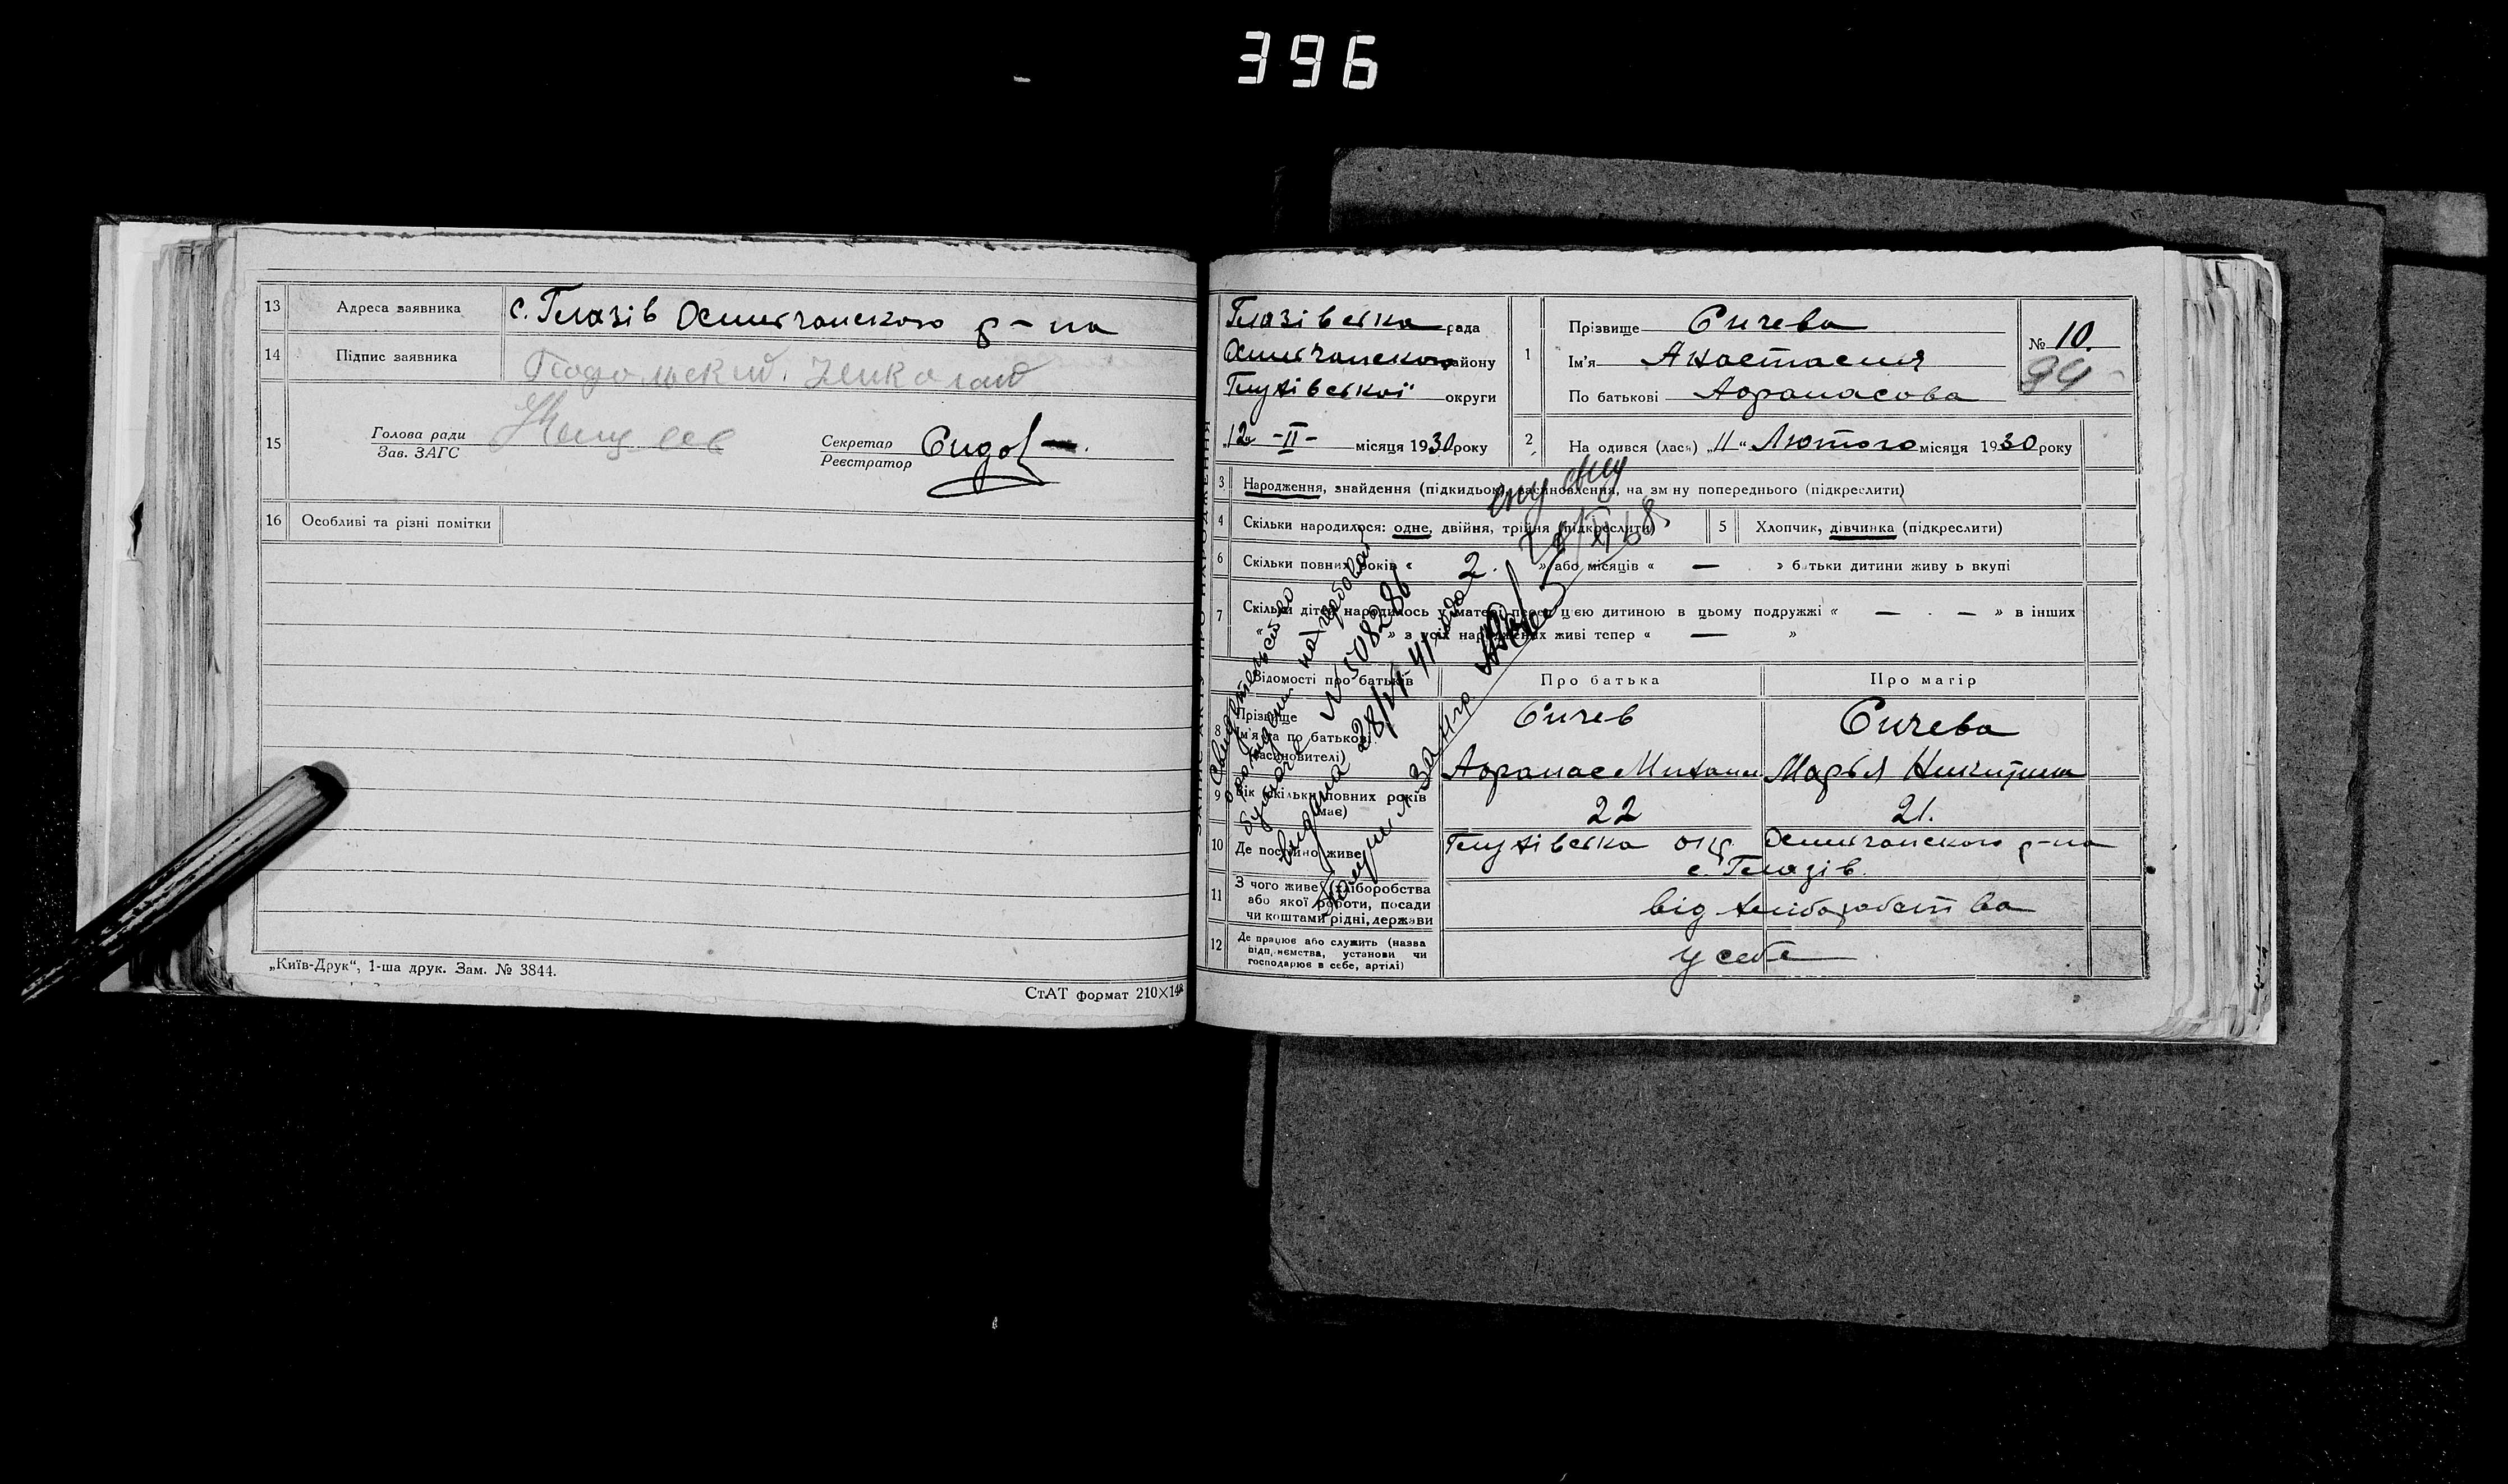 396
13 Адреса заявника с. Глазів Есманчанского р-на
14 Підпис заявника Подольский Николай
15 Голова ради
Зав. ЗАГС
Секретар
Реєстратор
16 Особливі та різні помітки
„Київ-Друк“, 1-ша друк. Зам. № 3844.
СтАТ формат 210×148
Глазівська рада
району
Глухівської округи
„12“ -II- місяця 1930 року
1 Прізвище Сичева
Ім'я Анастасия
По батькові Афанасова
№ 10.
94
2 На одився (лася) „11“ Лютого місяця 1930 року
3 Народження, знайдення (підкидьок), засиновлення, на зм ну попереднього (підкреслити)
4 Скільки народилося: одне, двійня, трійня (підкреслити)
5 Хлопчик, дівчинка (підкреслити)
6 Скільки повних років « 2. » або місяців « — » батьки дитини живу ь вкупі
7 Скільки дітей народилось у матері перед цією дитиною в цьому подружжі « — — » в інших
« » з усіх народжених живі тепер « — »
Відомості про батьків
Про батька
Про матір
8 Прізвище
Ім'я та по батькові
(засиновителі)
Сичев
Афанас Михаил
Сичева
Марья Никитина
9 Вік (скільки повних років має)
22
21.
10 Де постійно живе
Глухівска окр р-на
с. Глазів.
11 З чого живе: хліборобства
або якої роботи, посади
чи коштами рідні, держави
від хліборобства
12 Де працює або служить (назва
підприємства, установи чи
господарює в себе, артілі)
у себе
Свидетельство
о рождении на гербовой
бумаге № 508286
выдана 28/VI-41 года